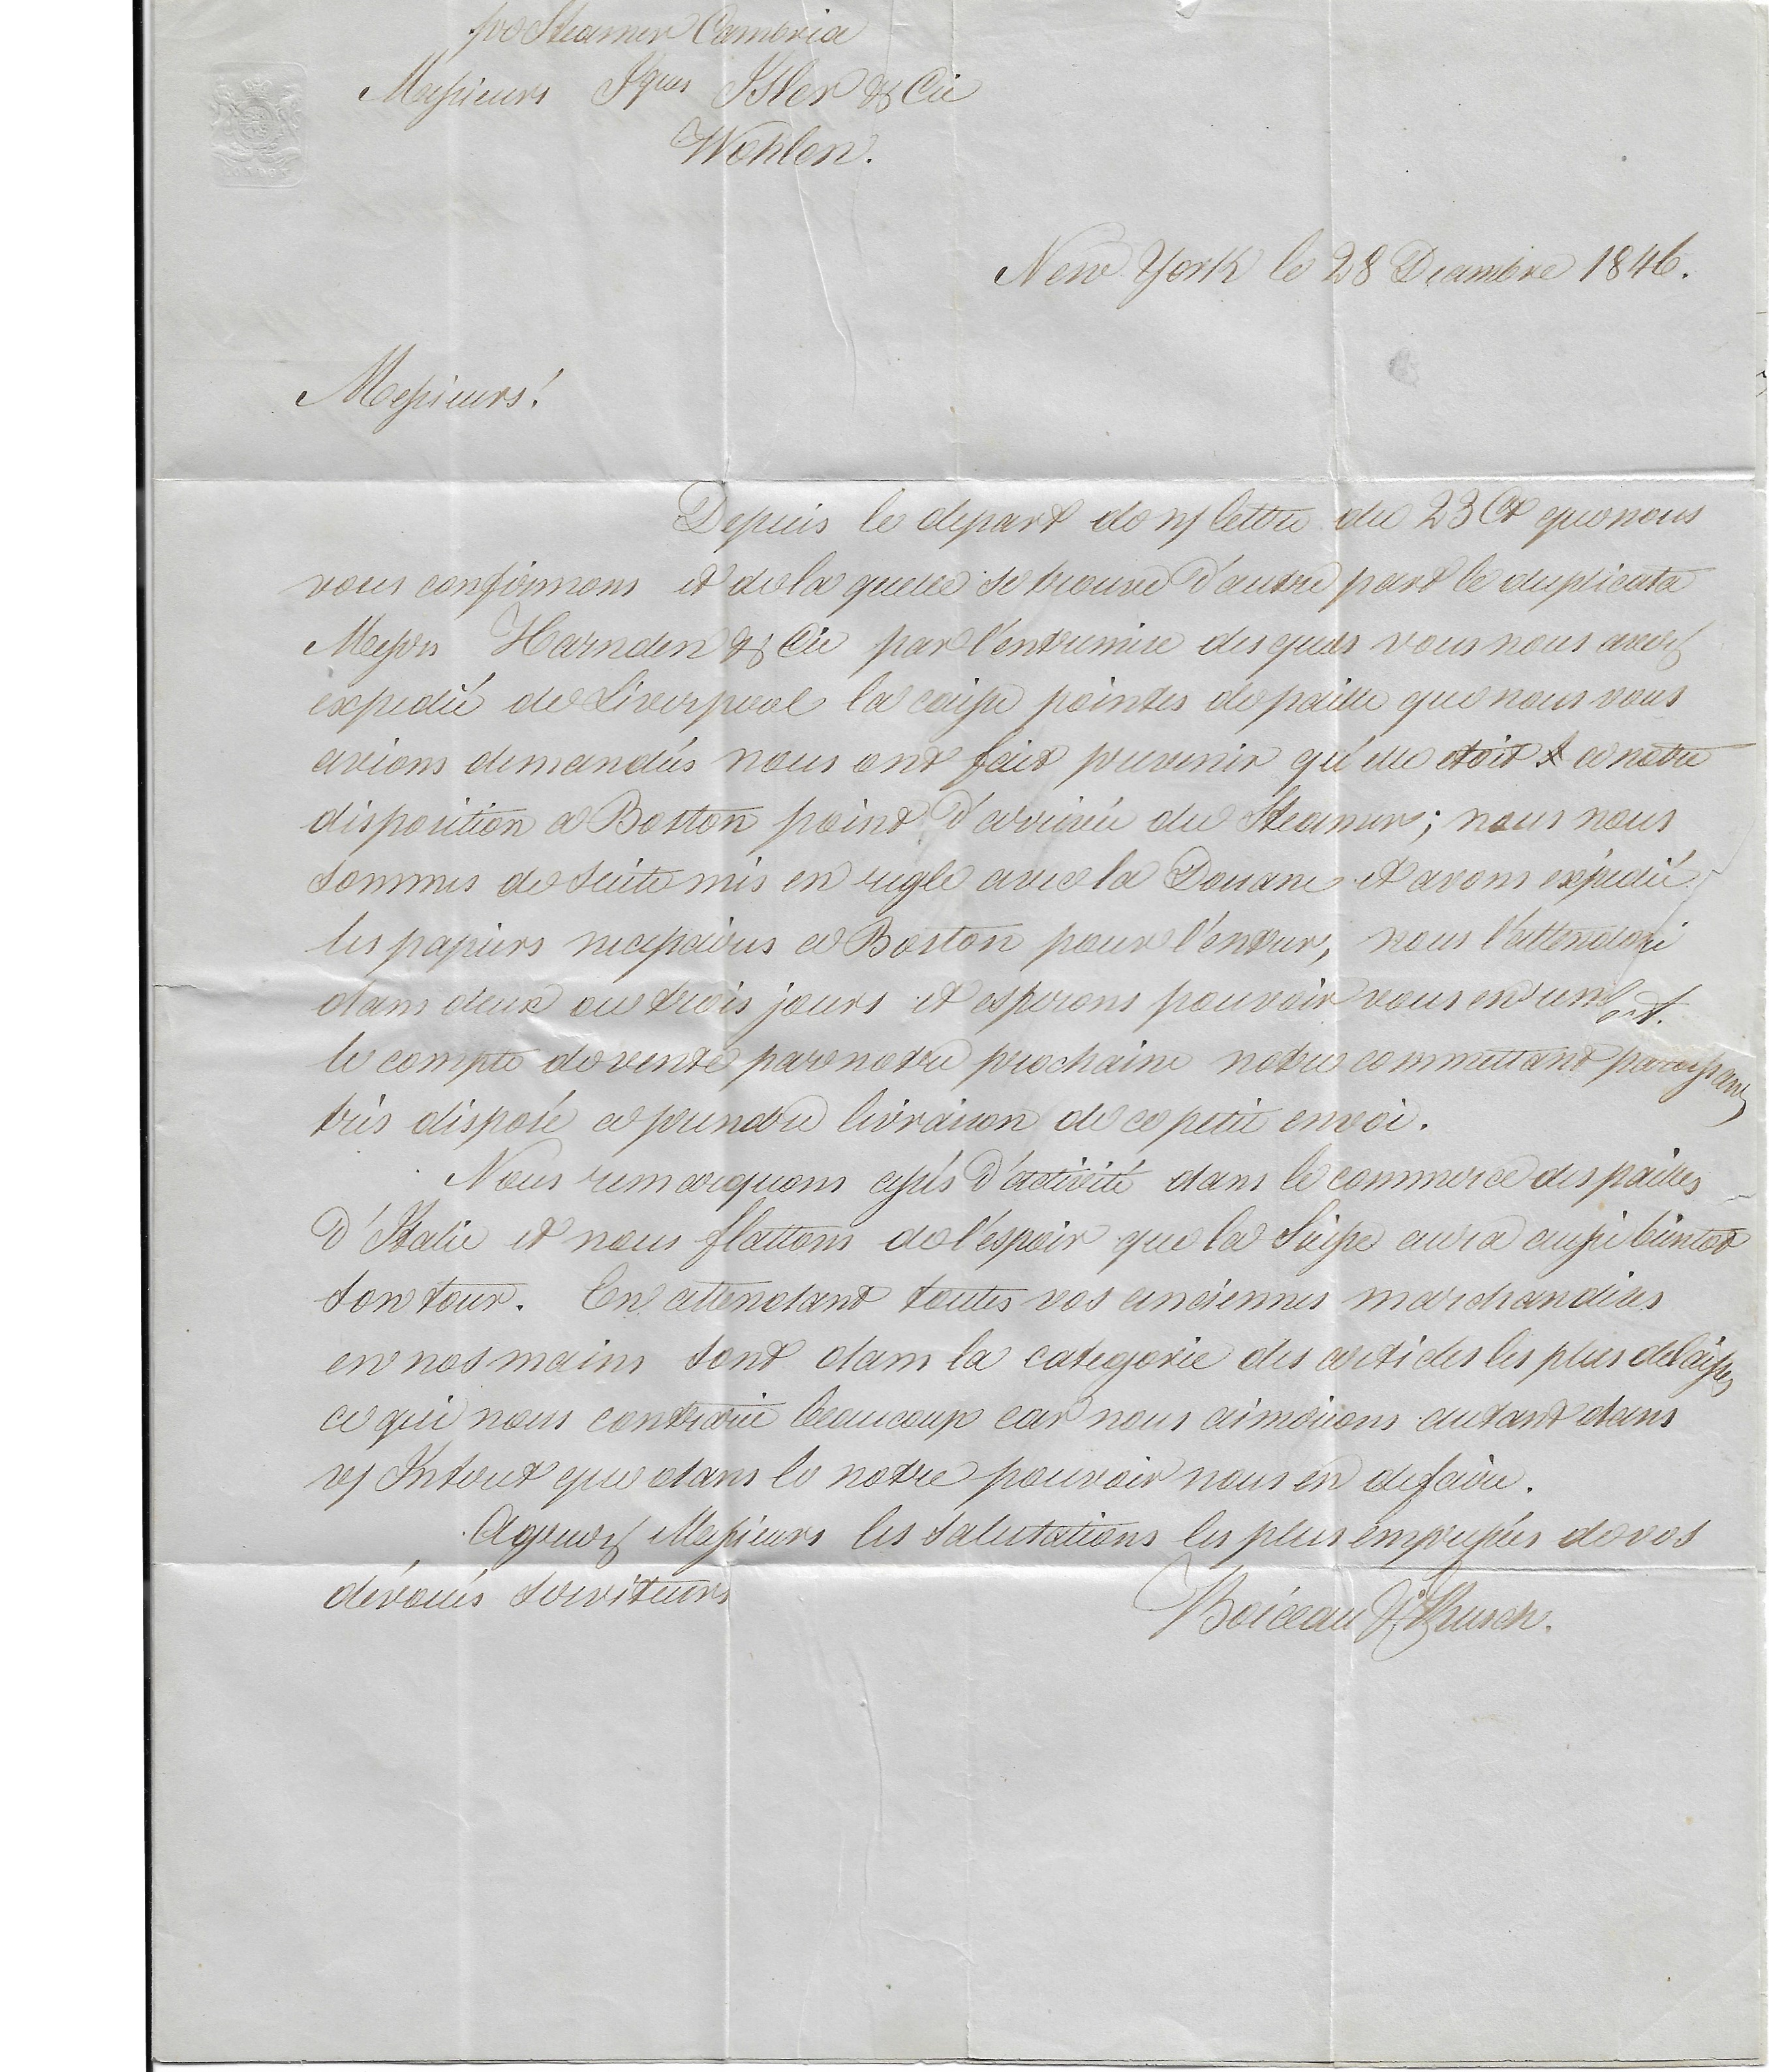 pr Steamer Cambria
Messieurs Jques Isler & Cie
Wohlen.
New York le 28 Decembre 1846.
Messieurs!
Depuis le depart de n/ lettre du 23 Ct que nous
vous confirmons et de la quelle se trouve d'autre part le duplicata
Messrs Harnden & Cie par l'entremise desquels vous nous avez
expedié de Liverpool la caisse pointes de paille que nous vous
avions demandées nous ont fait prevenir qu'elle etoit a notre
disposition a Boston point d'arrivée du Steamer; nous nous
sommes de suite mis en regle avec la Douane et avons expedié
les papiers necessaires a Boston pour l'entrer, nous l'attendons
dans deux ou trois jours et esperons pouvoir vous en
le compte de vente par notre prochaine notre commettant paroissant
très disposé a prendre livraison de ce petit envoi.
Nous remarquons assés d'activité dans le commerce des pailles
d'Italie et nous flattons de l'espoir que la Suisse aura aussi bientot
son tour. En attendant toutes vos anciennes marchandises
en nos mains sont dans la categorie des articles les plus delaissés
ce qui nous contrarie beaucoup car nous aimerions autant dans
v/ Interet que dans le notre pouvoir nous en defaire.
Agreez Messieurs les salutations les plus empressées de vos
dévoués serviteurs
Boiceau & Rusch.